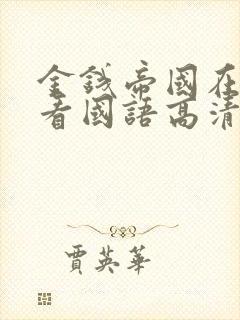 金錢帝國在
看國語高清
賈英華